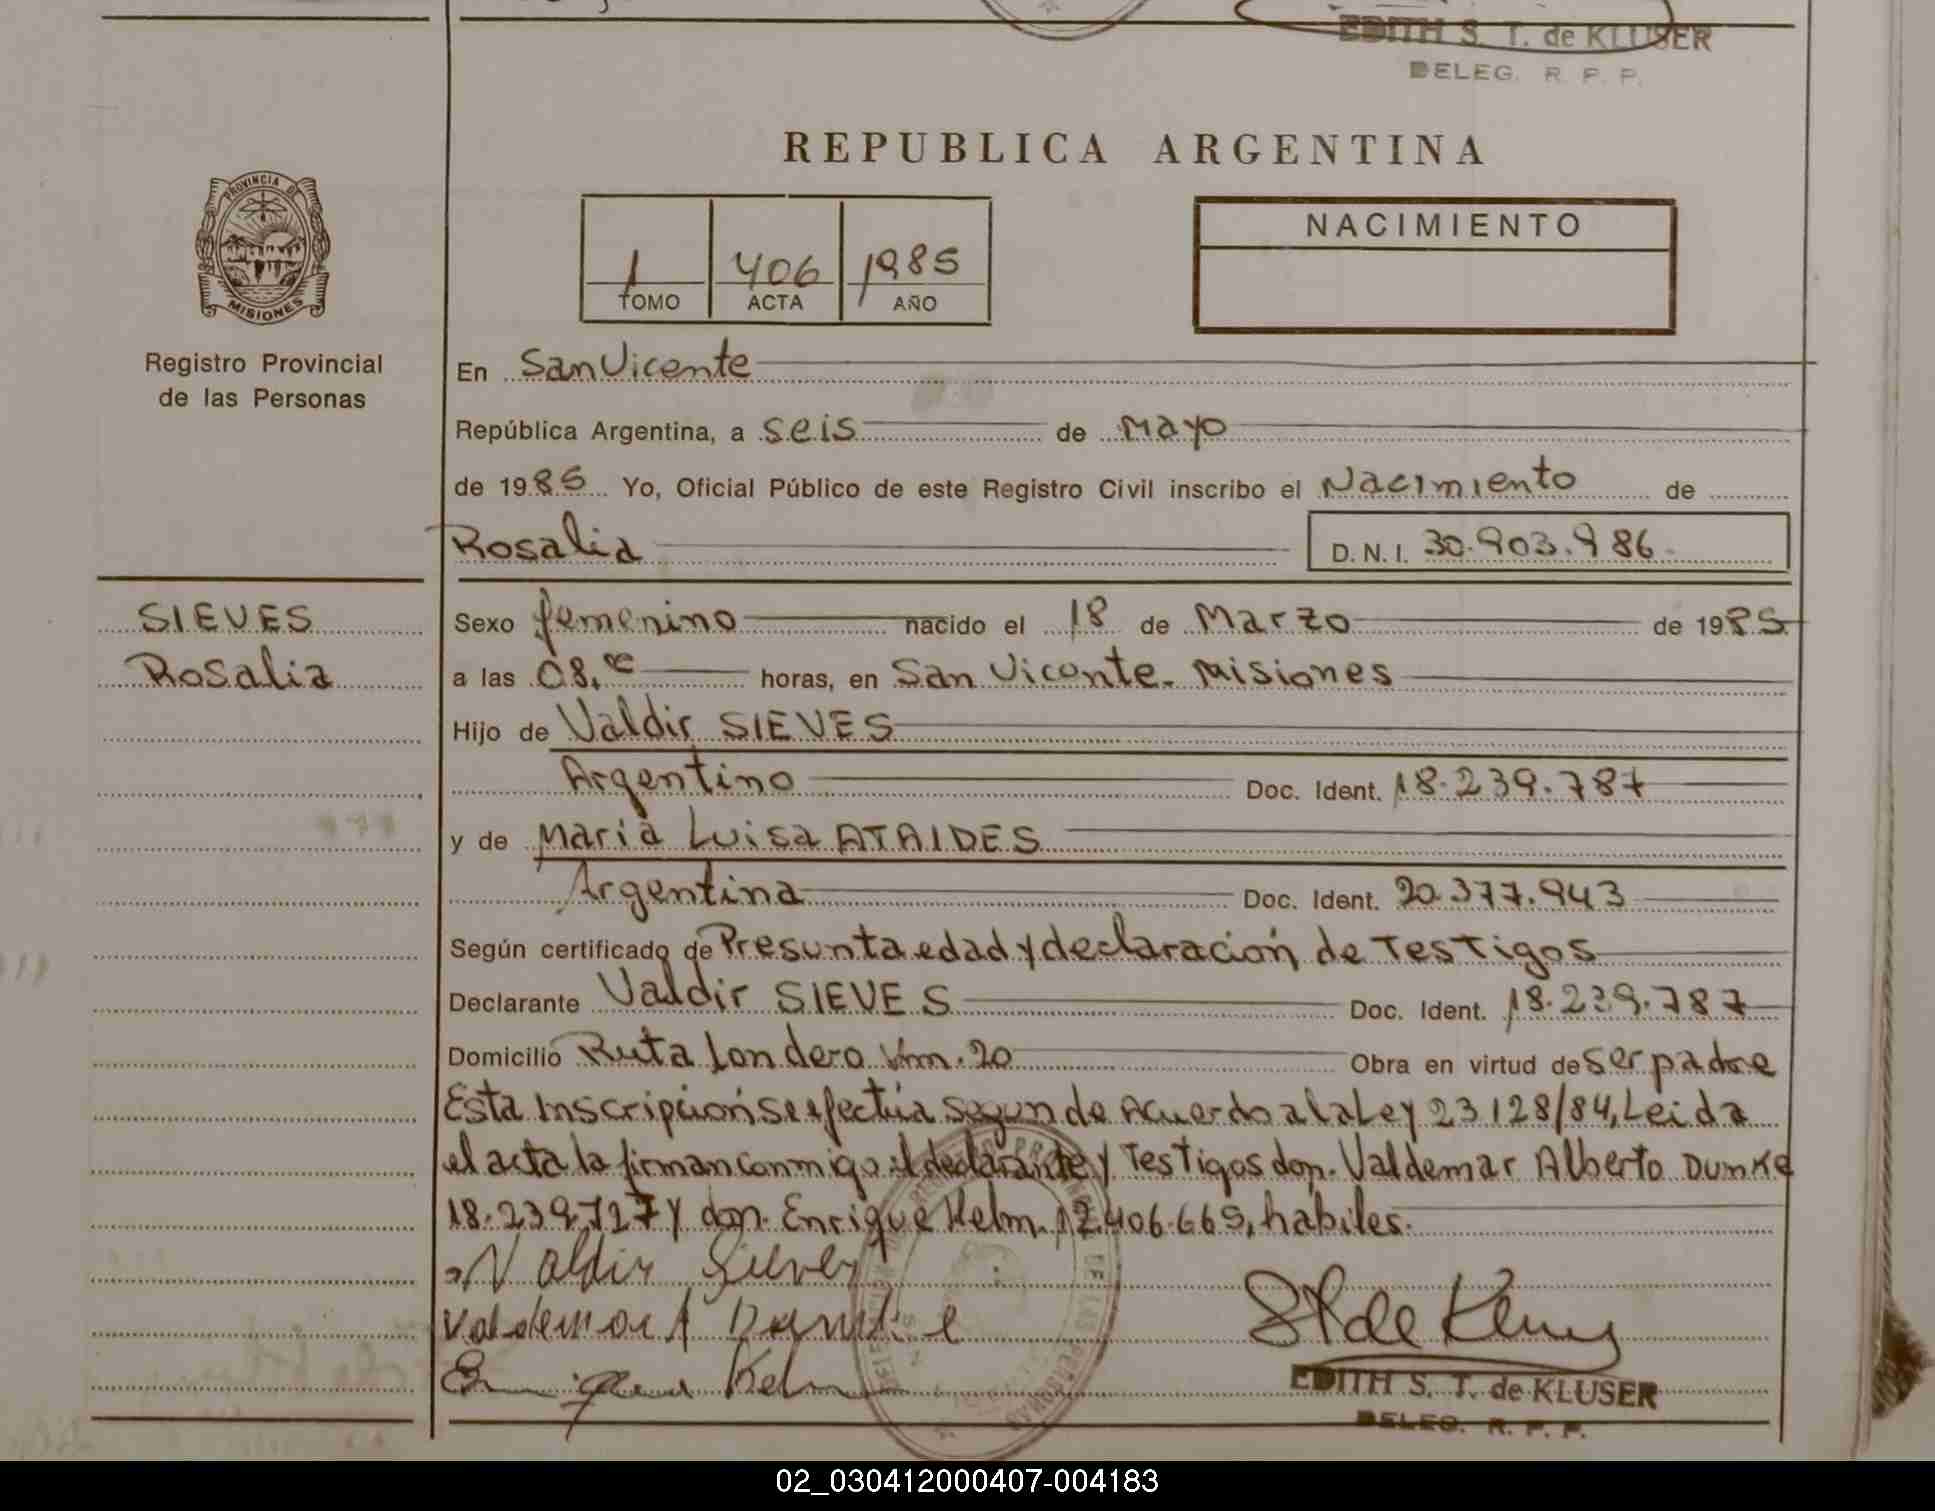 EDITH S. T. de KLUSER
DELEG. R. P. P.
REPUBLICA ARGENTINA
PROVINCIA DE
MISIONES
Registro Provincial
de las Personas
1 406 1985
TOMO ACTA AÑO
NACIMIENTO
En San Vicente
República Argentina, a seis de Mayo
de 1985 Yo, Oficial Público de este Registro Civil inscribo el Nacimiento de
Rosalia D. N. I. 30.903.986
SIEVES
Rosalia
Sexo femenino nacido el 18 de Marzo de 1985
a las 08, horas, en San Vicente. Misiones
Hijo de Valdir SIEVES
Argentino Doc. Ident. 18.239.787
y de Maria Luisa ATAIDES
Argentina Doc. Ident. 20.377.943
Según certificado de Presunta edad y declaración de Testigos
Declarante Valdir SIEVES Doc. Ident. 18.239.787
Domicilio Ruta Londero Km. 20 Obra en virtud de ser padre
Esta Inscripción se efectúa segun de Acuerdo a la Ley 23.128/84, Leida
el acta la firman conmigo el declarante y Testigos don. Valdemar Alberto Dumke
18.239.727 y don. Enrique Kelm. 12.406.669, habiles.
Valdir Sieves
Valdemar A Dumke
Enrique Kelm
ST de Kluser
EDITH S. T. de KLUSER
DELEG. R. P. P.
02_030412000407-004183